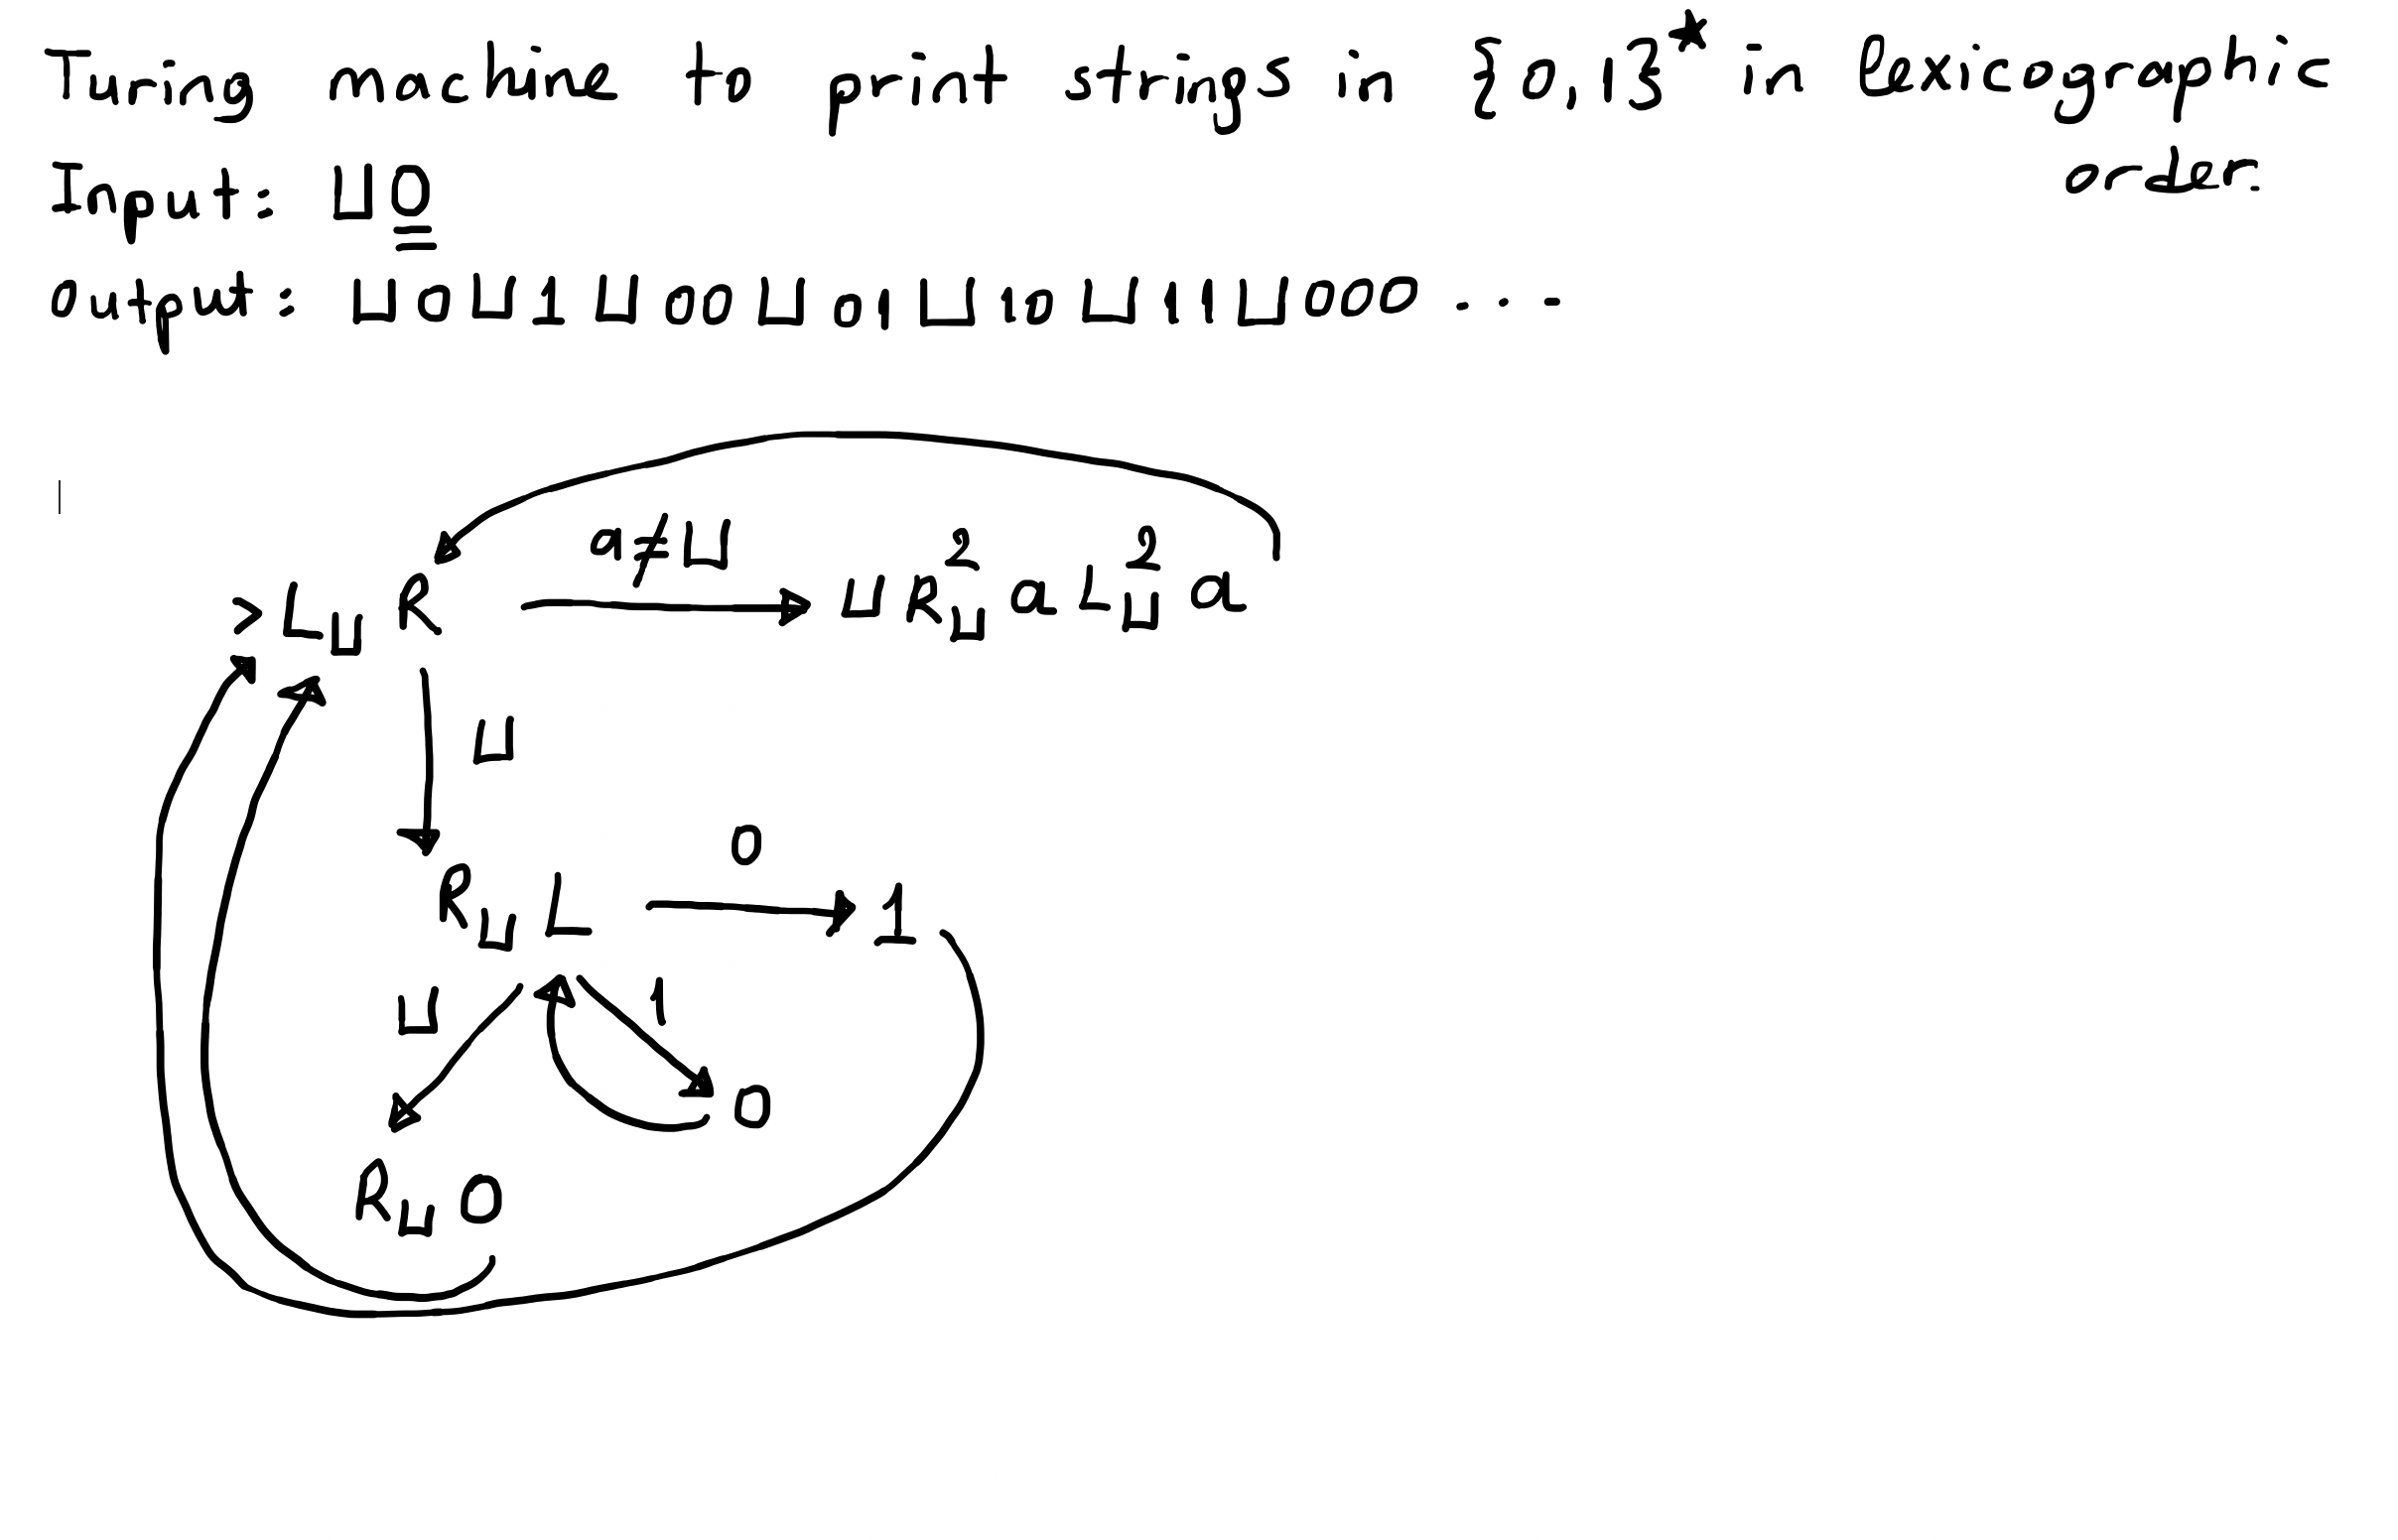 Turing machine to print strings in {0,1}* in lexicographic order.
Input: ⊔0
output: ⊔0⊔1⊔00⊔01⊔10⊔11⊔000 ...
a≠⊔
>L⊔ R ⊔ R²⊔ a L²⊔ a
⊔
0
R⊔ L 1
⊔ 1
0
R⊔ 0